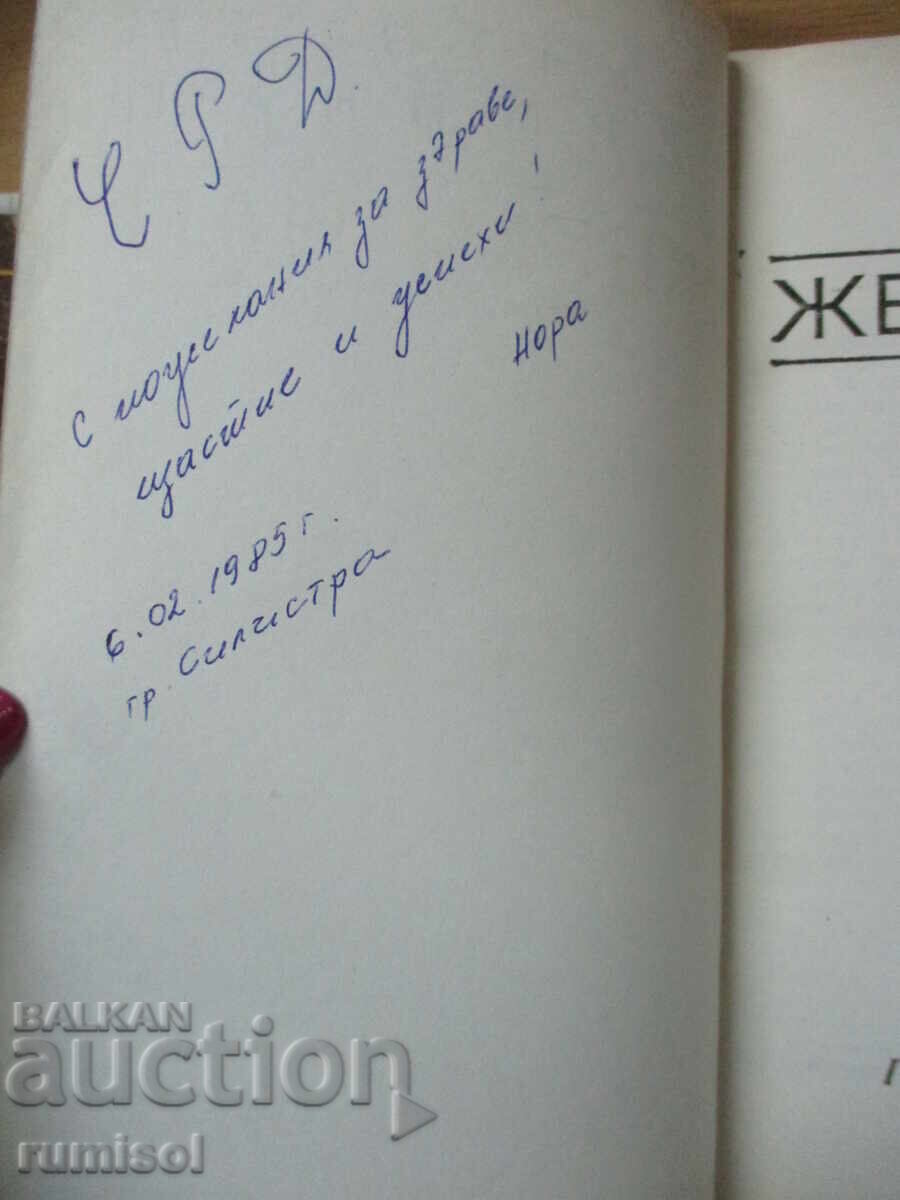 Ч Р Д.
с пожелания за здраве,
щастие и успехи!
Нора
6.02.1985 г.
гр. Силистра
ЖЕ
BALKAN
auction
rumisol